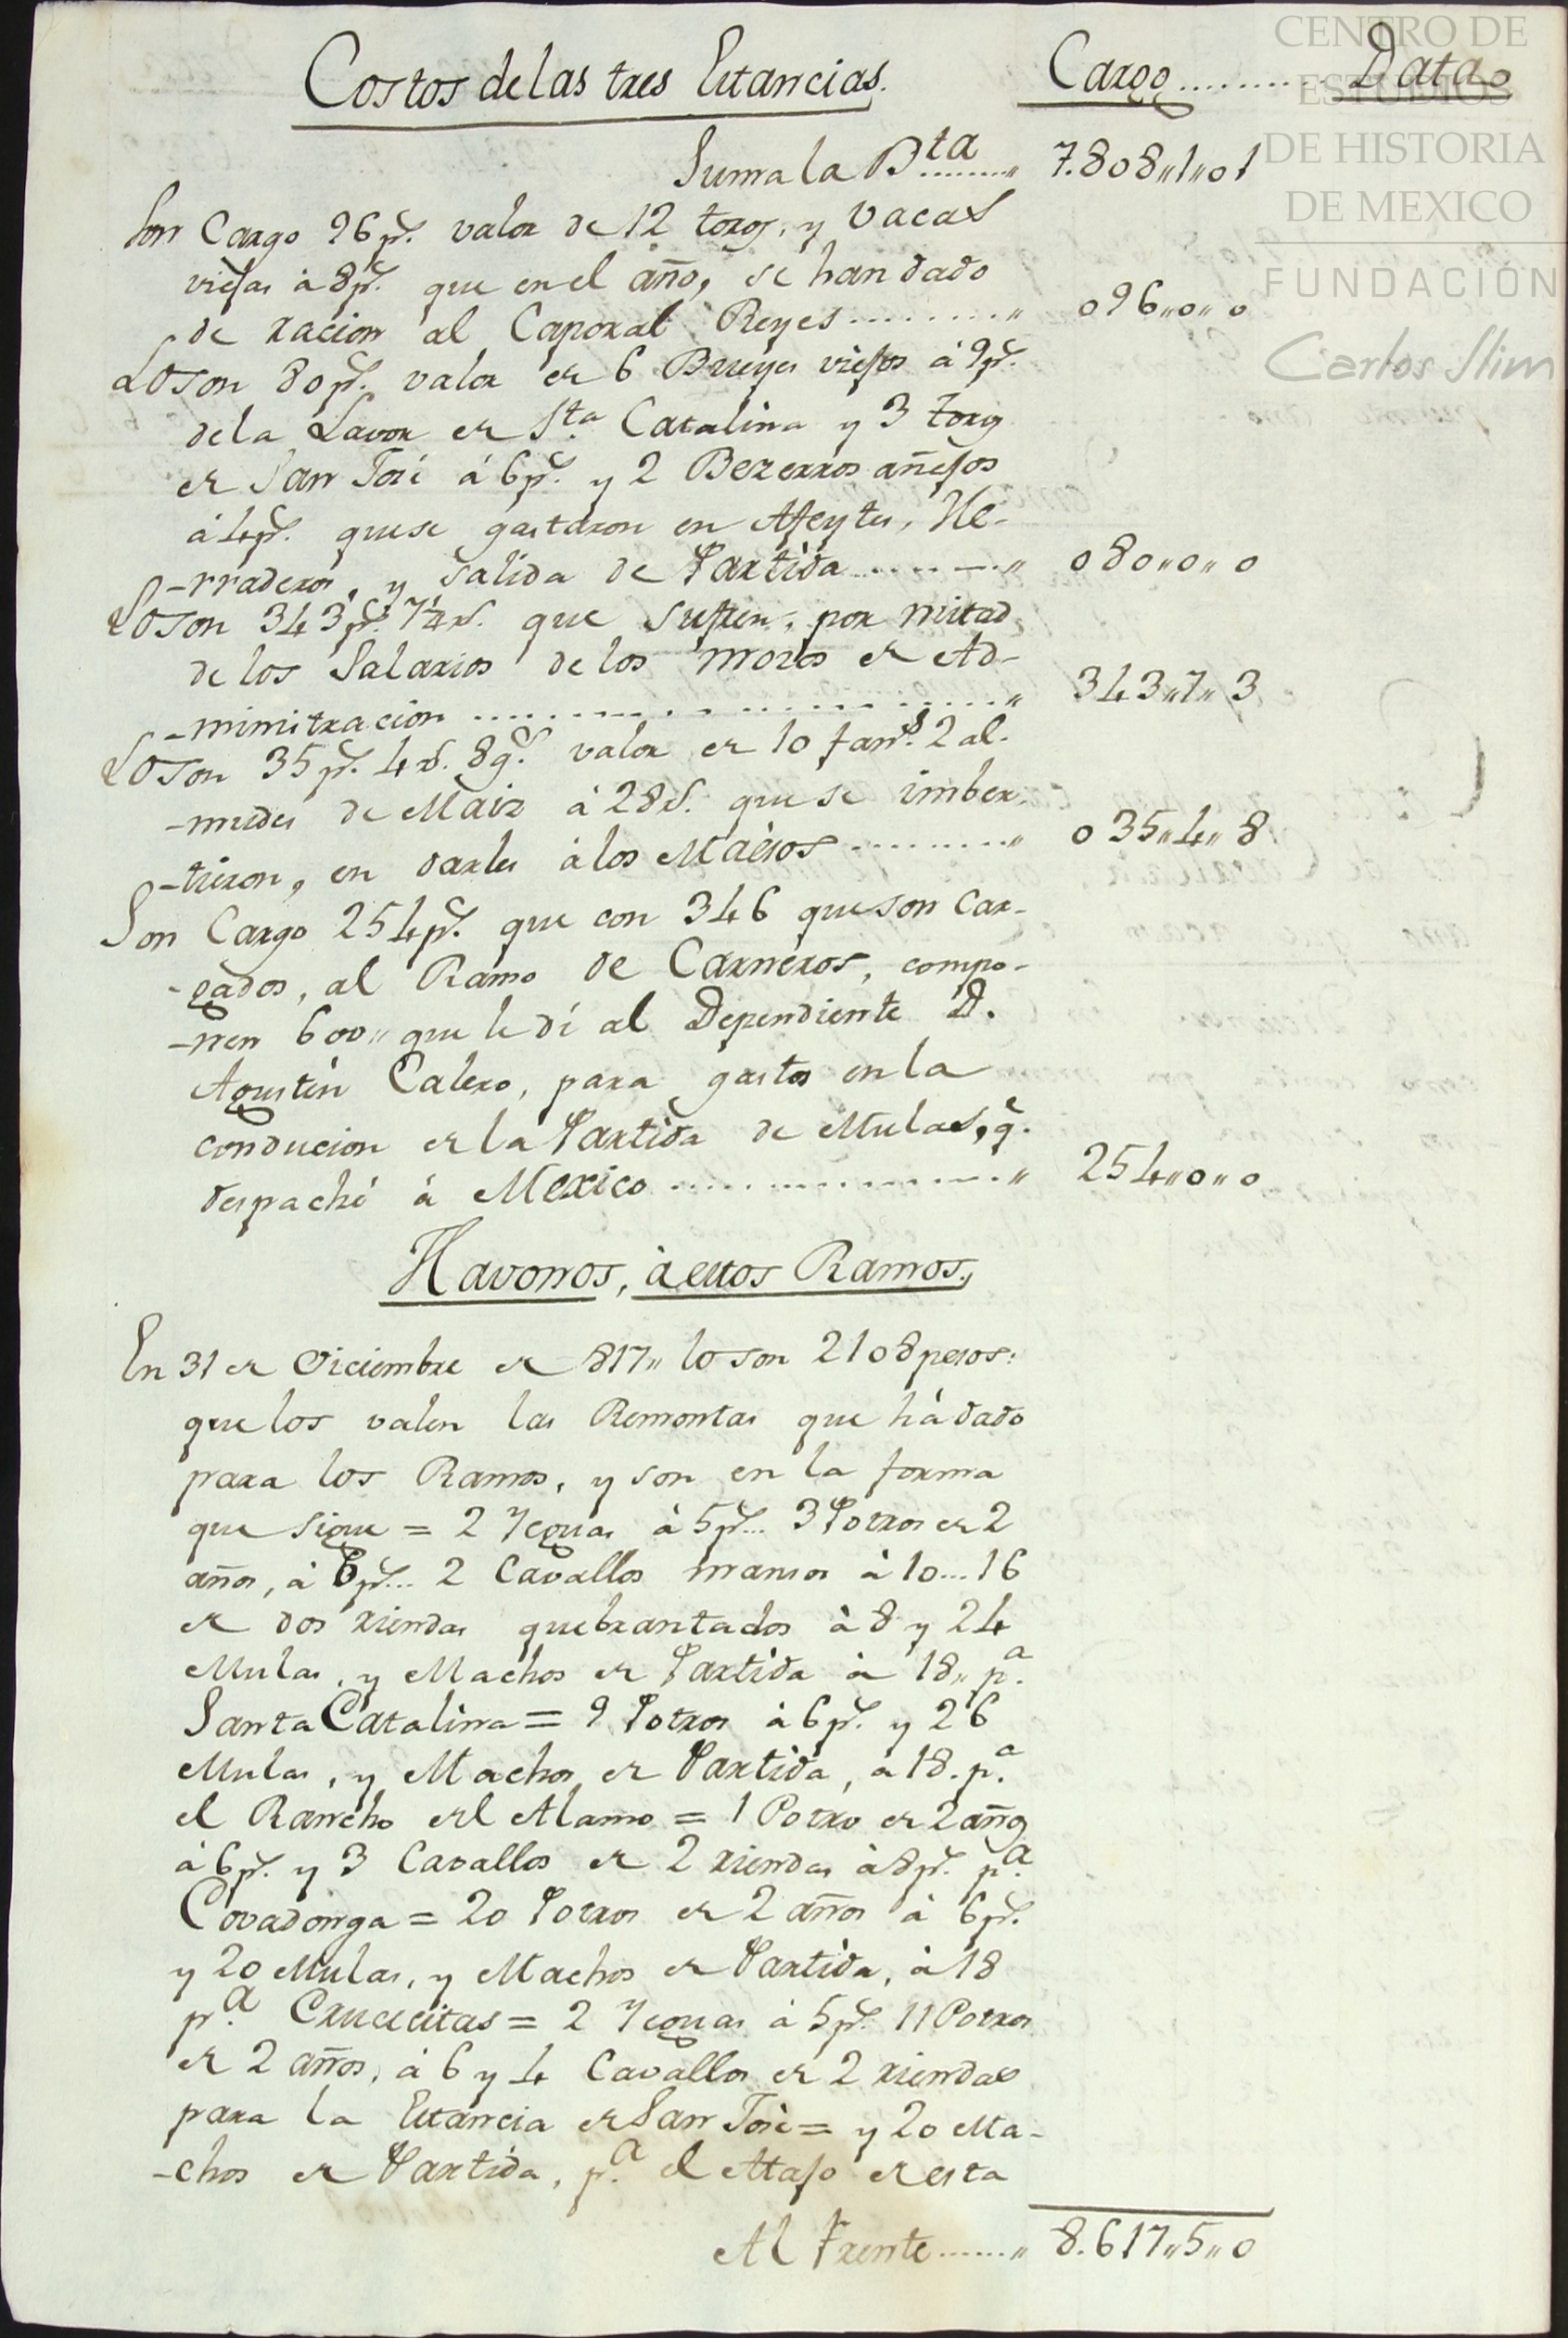 Costos de las tres Estancias. Cargo.......... Data
Suma la B.ta........,, 7.808,,1,,01
Son Cargo 96 p.s valor de 12 toros, y vacas
viejas à 8 p.s que en el año, se han dado
de racion al Caporal Reyes.........,, 096,,0,,0
Lo son 80 p.s valor de 6 Bueyes viejos à 9 p.s
de la Lavor de S.ta Catalina y 3 toros
de San José à 6 p.s y 2 Bezerros añejos
à 4 p.s que se gastaron en Afeytes, He-
-rraderos, y salida de Partida.........,, 080,,0,,0
Lo son 343 p.s 7¼ r.s que suplen, por mitad
de los Salarios de los mozos de Ad-
-minitracion ....................,, 343,,7,,3
Lo son 35 p.s 4 r.s 8 g.s valor de 10 fan.s 2 al-
-mudes de Maiz à 28 r.s que se imber-
-tieron, en darles à los Maèsos..........,, 035,,4,,8
Son Cargo 254 p.s que con 346 que son Car-
-gados, al Ramo de Carneros, compo-
-nen 600,, que le dí al Dependiente D.
Agustin Calero, para gastos en la
conducion de la Partida de Mulas, q.e
despaché à Mexico ................,, 254,,0,,0
Havonos, à estos Ramos.,
En 31 de Diciembre de 817,, lo son 2108 pesos:
que los valen las Remontas que há dado
para los Ramos, y son en la forma
que sigue = 2 Yeguas à 5 p.s... 3 Potros de 2
años, à 6 p.s... 2 Cavallos mansos à 10... 16
de dos riendas quebrantados à 8 y 24
Mulas, y Machos de Partida à 18,, p.a
Santa Catalina = 9 Potros à 6 p.s y 26
Mulas, y Machos de Partida, a 18. p.a
el Rancho del Alamo = 1 Potro de 2 años
à 6 p.s y 3 Cavallos de 2 riendas à 8 p.s p.a
Covadonga = 20 Potros de 2 años à 6 p.s
y 20 Mulas, y Machos de Partida, à 18
p.a Crucecitas = 2 Yeguas à 5 p.s 11 Potros
de 2 años, à 6 y 4 Cavallos de 2 riendas
para la Estancia de San José = y 20 Ma-
-chos de Partida, p.a el Atajo de esta
Al Frente.......,, 8.617,,5,,0
CENTRO DE
ESTUDIOS
DE HISTORIA
DE MEXICO
FUNDACIÓN
Carlos Slim